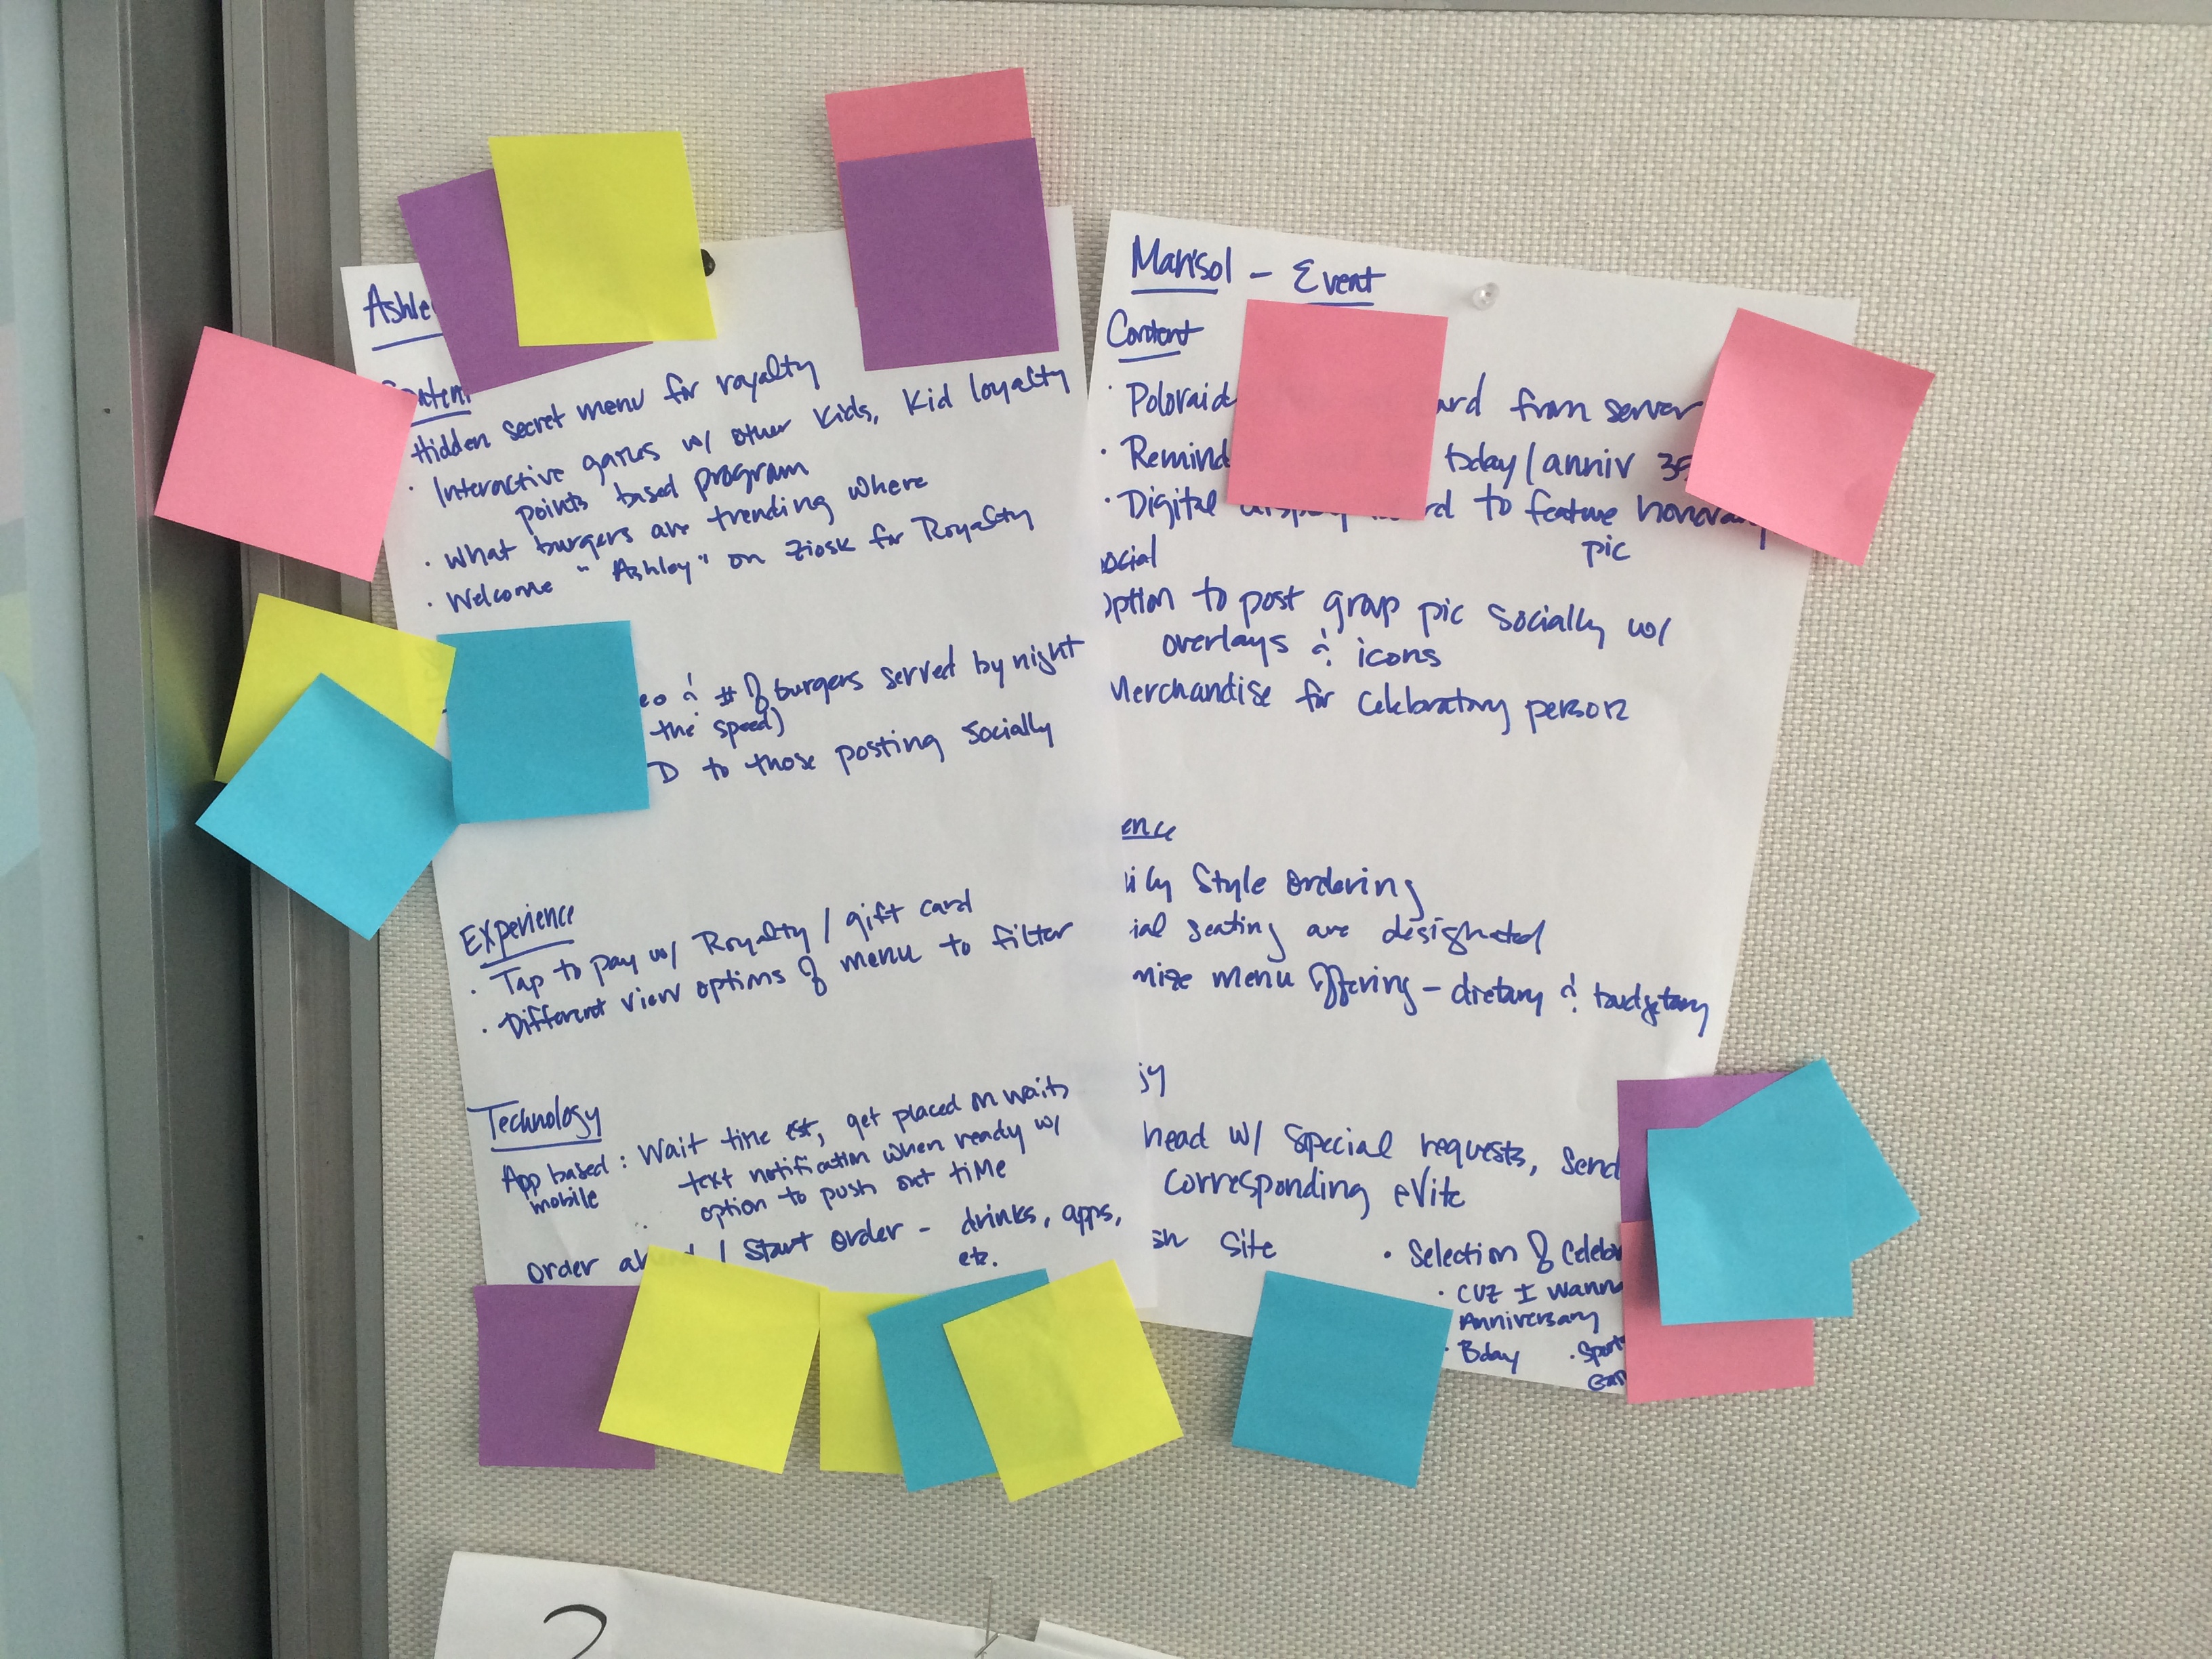 Ashle
Hidden Secret menu for royalty
· Interactive games w/ other kids, kid loyalty
points based program
· What burgers are trending where
· Welcome "Ashley" on Ziosk for Royalty
eo & # of burgers served by night
the speed)
D to those posting socially
Experience
· Tap to pay w/ Royalty / gift card
· Different view options of menu to filter
Technology
App based : Wait time est, get placed on waits
mobile text notification when ready w/
option to push out time
order / Start order - drinks, apps,
etc.
Marisol - Event
Content
· Poloraid ard from server
· Remind bday/anniv
· Digital rd to feature
pic
ocial
option to post group pic socially w/
overlays & icons
Merchandise for celebratory person
ence
ily Style ordering
ial seating are designated
mize menu offering - dietary & budgetary
gy
head w/ special requests, send
corresponding evite
sh site
· Selection of Celebr
· CUZ I wanna
Anniversary
· Bday · Sport